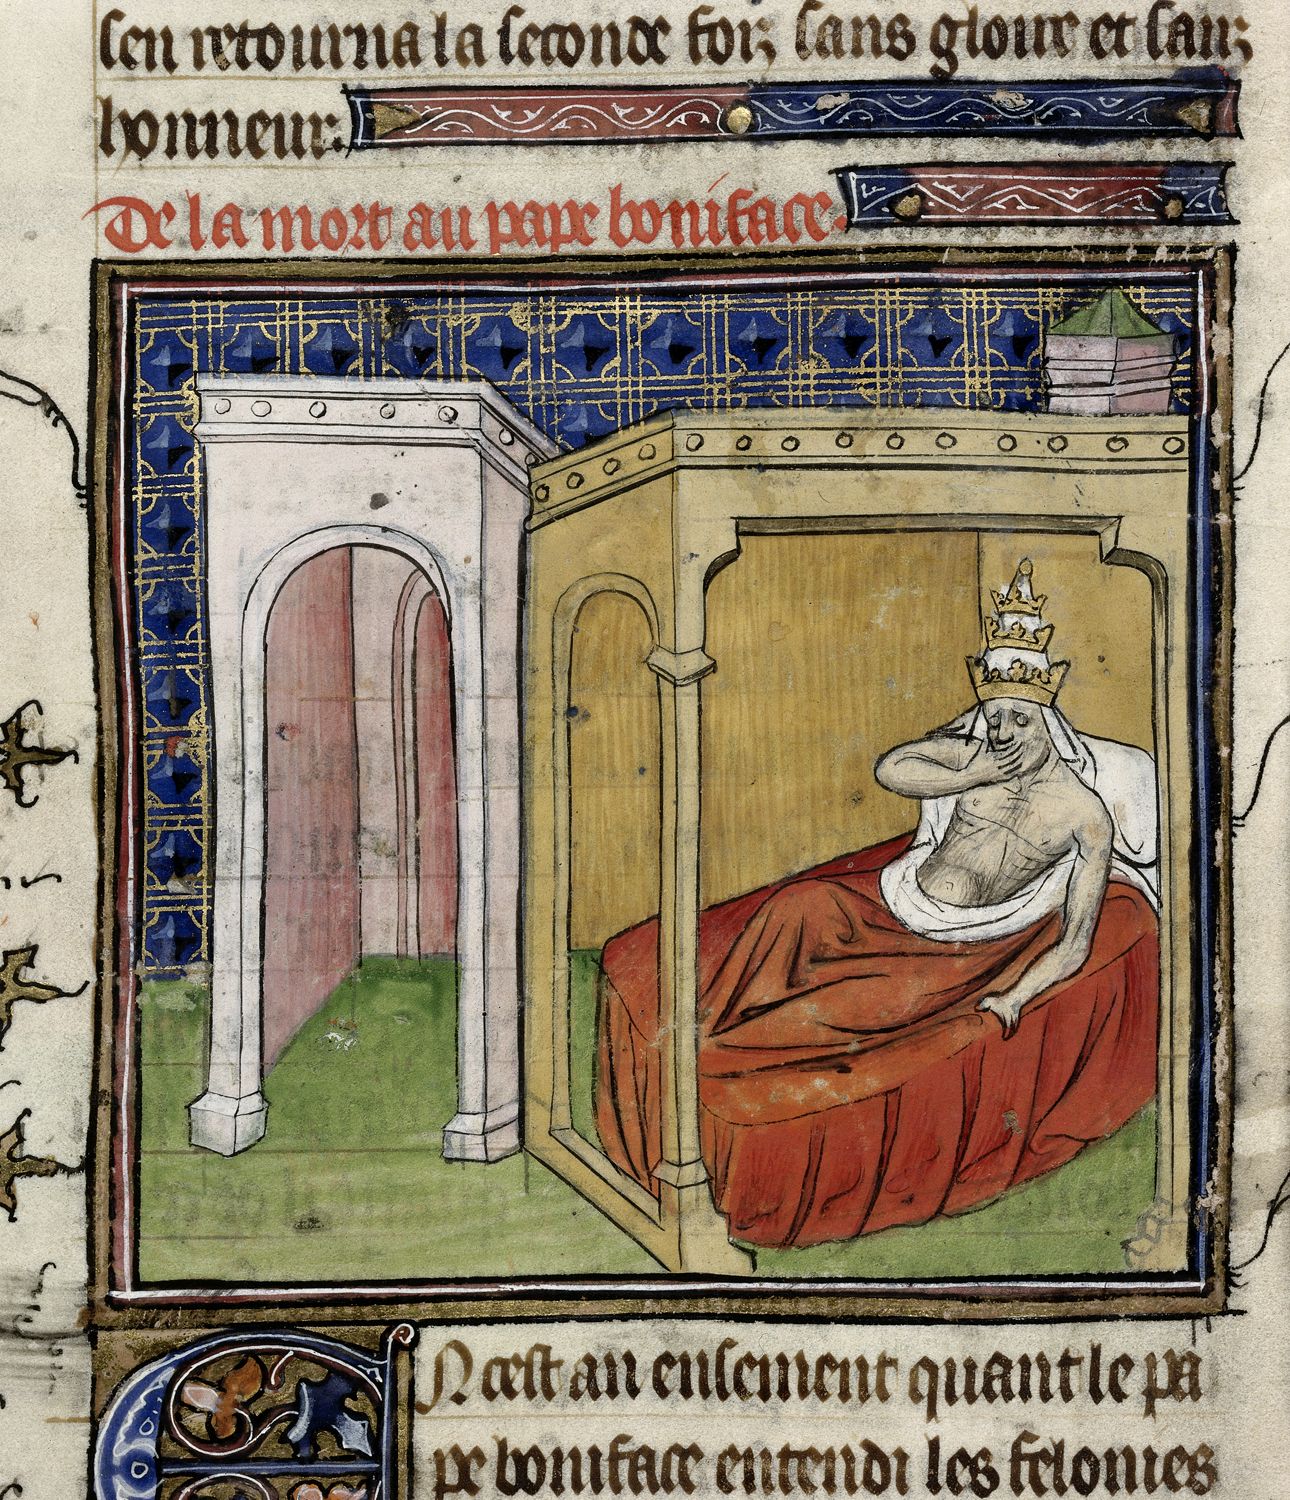 sen retourna la seconde foiz sans gloire et sanz
honneur.
De la mort au pape boniface.
En cest an ensement quant le pa
pe boniface entendi les felonies